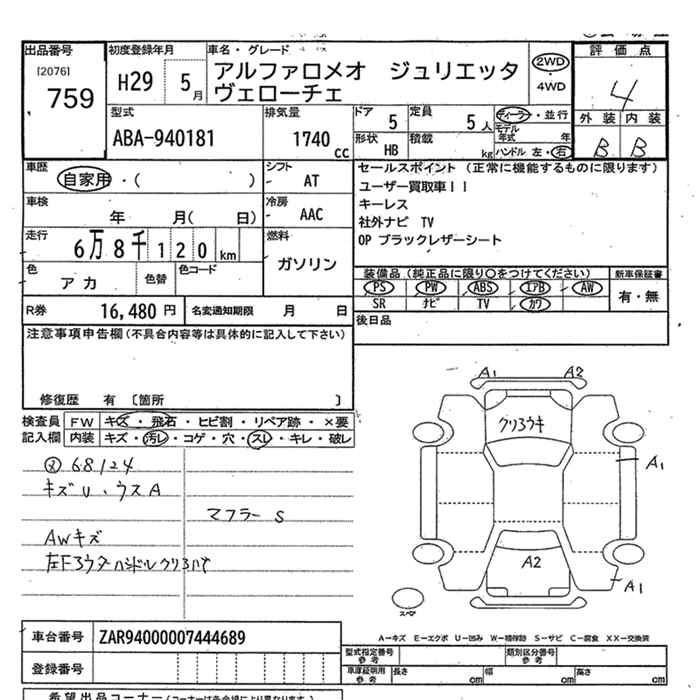 出品番号
[2076]
759
初度登録年月
H29 5月
車名・グレード
アルファロメオ ジュリエッタ
ヴェローチェ
2WD
・
4WD
評価点
4
外装 内装
B B
型式
ABA-940181
排気量
1740 cc
ドア
5
定員
5人
形状
HB
積載
kg
ディーラー・並行
モデル年式 年
ハンドル 左・右
車歴
自家用・( )
シフト
AT
車検
年 月( 日)
冷房
AAC
走行
6万8千120km
燃料
ガソリン
色
アカ
色替
色コード
R券 16,480円
名変通知期限 月 日
セールスポイント(正常に機能するものに限ります)
ユーザー買取車!!
キーレス
社外ナビ TV
OP ブラックレザーシート
装備品(純正品に限り○をつけてください)
PS PW ABS エアB AW
SR ナビ TV カワ
新車保証書
有・無
後日品
注意事項申告欄(不具合内容等は具体的に記入して下さい)
修復歴 有 〔箇所 〕
検査員記入欄
FW キズ・飛石・ヒビ割・リペア跡・×要
内装 キズ・汚レ・コゲ・穴・スレ・キレ・破レ
68124
キズU、ウスA
マフラーS
AWキズ
A1 A2
A1
A2
A1
スペア
車台番号 ZAR94000007444689
登録番号
A−キズ E−エクボ U−凹み W−補修跡 S−サビ C−腐食 XX−交換済
型式指定番号
参考
類別区分番号
参考
車庫証明用
参考
長さ cm 幅 cm 高さ cm
希望出品コーナー